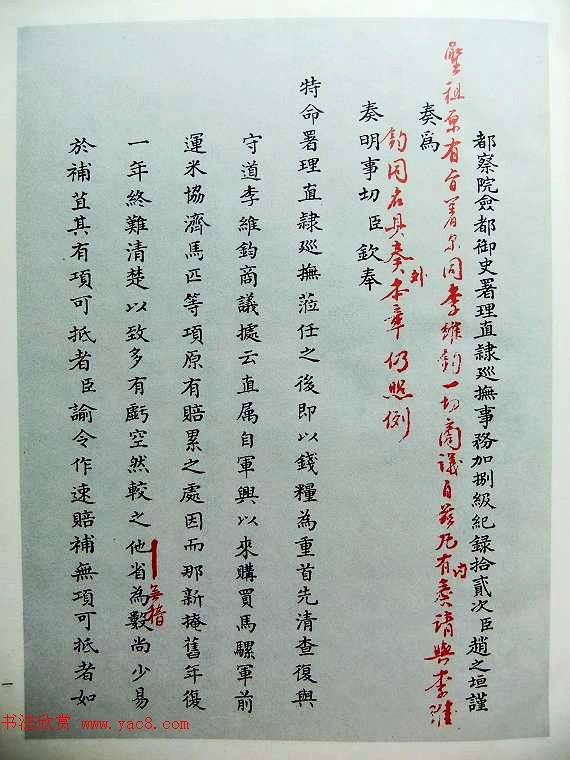 都察院僉都御史署理直隷廵撫事務加捌級紀錄拾貳次臣趙之垣謹
聖祖原有旨着尔同李維鈞一切商議自茲凡有內奏請與李維
奏爲
鈞同名具奏外本章仍照例
奏明事切臣欽奉
特命署理直隷廵撫蒞任之後即以錢糧為重首先清查復與
守道李維鈞商議據云直属自軍興以來購買馬騾軍前
運米協濟馬匹等項原有賠累之處因而那新掩舊年復
無稽
一年終難清楚以致多有虧空然較之他省為數尚少易
於補苴其有項可抵者臣諭令作速賠補無項可抵者如
一
书法欣赏 www.yac8.com